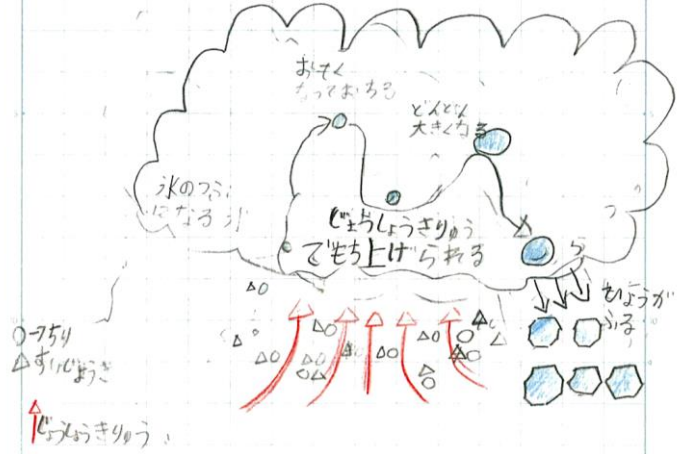 おもく
なっておちる
どんどん
大きくなる
氷のつぶ
になる
じょうしょうきりゅう
でもち上げられる
ひょうが
ふる
○→ちり
△すいじょうき
じょうしょうきりゅう